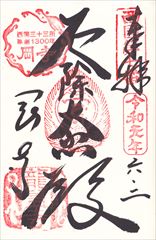 奉拝
令和元年
六・二
厄除大悲殿
西国三十三所
草創1300年
岡寺